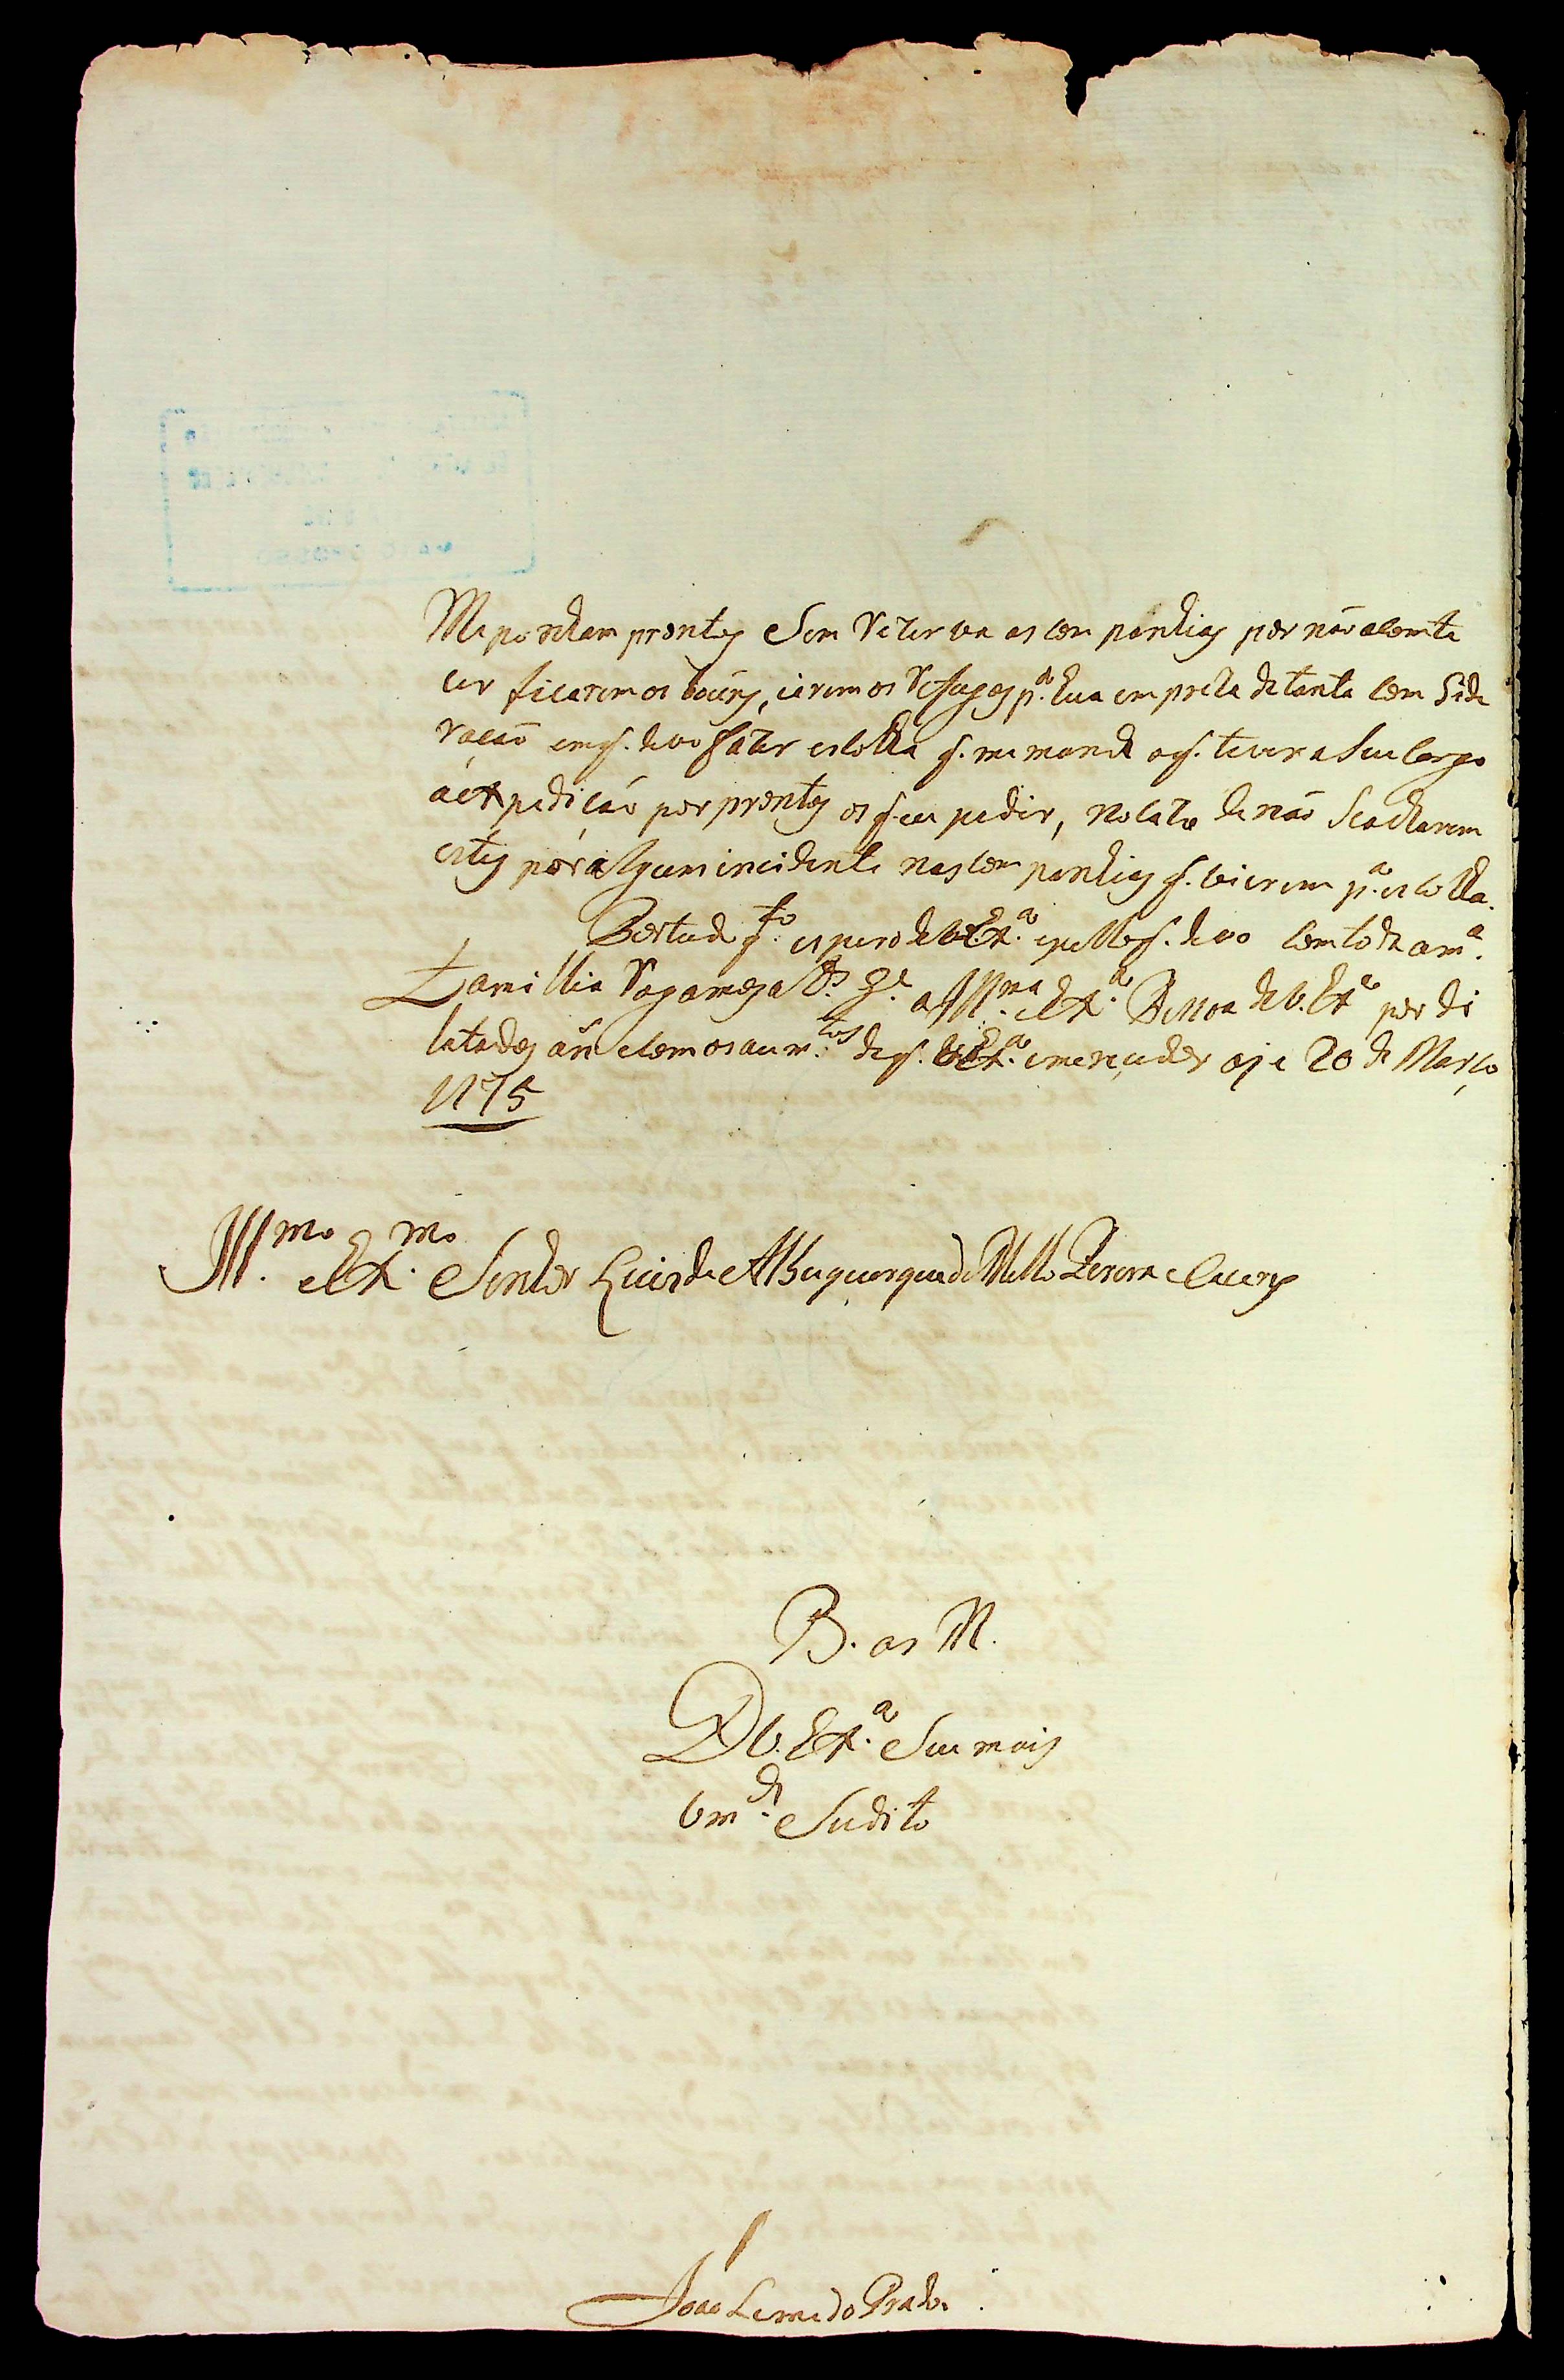 Me ponham prontos Sem Rezerva as Companhias por não aconte
cer ficarem os bõns, e irem os Refugos p.ª hua empreza de tanta Com Side
ração em q. devo fazer escolha q. me mande oq. tever a Seu Cargo
a expedição por prontos os q. eu pedir, no cazo de não Seacharem
estes por algum incidente nas Companhias q. vierem p.ª escolha.
de q.to espero de V. Ex.ª epello q. devo Com toda am.ª
Familia Rogamos a D.s g.e a Ill.ma e Ex.ª Pessoa de V. Ex.ª por di
latados añ e Com os aum.tos de q. V. Ex.ª emerecedor oje 20 de Março
1775
Ill.mo e Ex.mo Senhor Luis de Albuquerque de Mello Perera e Caceres
B. as M.
D V. Ex.ª Seu mais
um.de Sudito
João Leme do Prado.